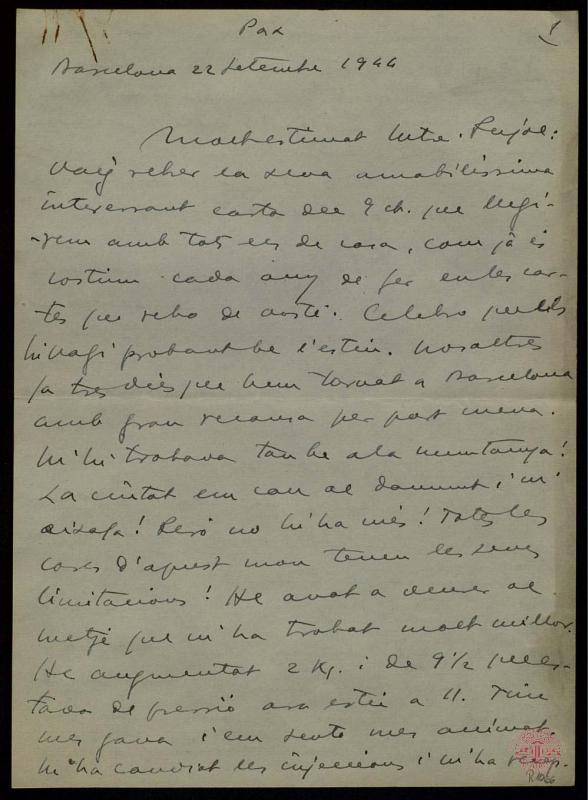 Pax
1
Barcelona 22 Setembre 1944
Molt estimat Mtre. Pujol:
Vaig rebre la seva amabilíssima
interessant carta del 9 ch. que llegí-
-rem amb tots els de casa, com jâ és
costum cada any de fer en les car-
tes que rebo de vostè. Celebro que els
hi vagi probant be l'estiu. Nosaltres
fa tres dies que hem tornat a Barcelona
amb gran recansa per part meva.
M'hi trobava tan be a la muntanya!
La ciutat em cau al damunt i m'
aixafa! Però no hi ha més! Totes les
coses d'aquest mon tenen les seves
limitacions! He anat a veure al
metje que m'ha trobat molt millor.
He augmentat 2 Kg. i de 9½ que es-
tava de pressió ara estic a 11. Tinc
mes gana i em sento mes animat.
M'ha canviat les injeccions i m'ha recep-
R.1066